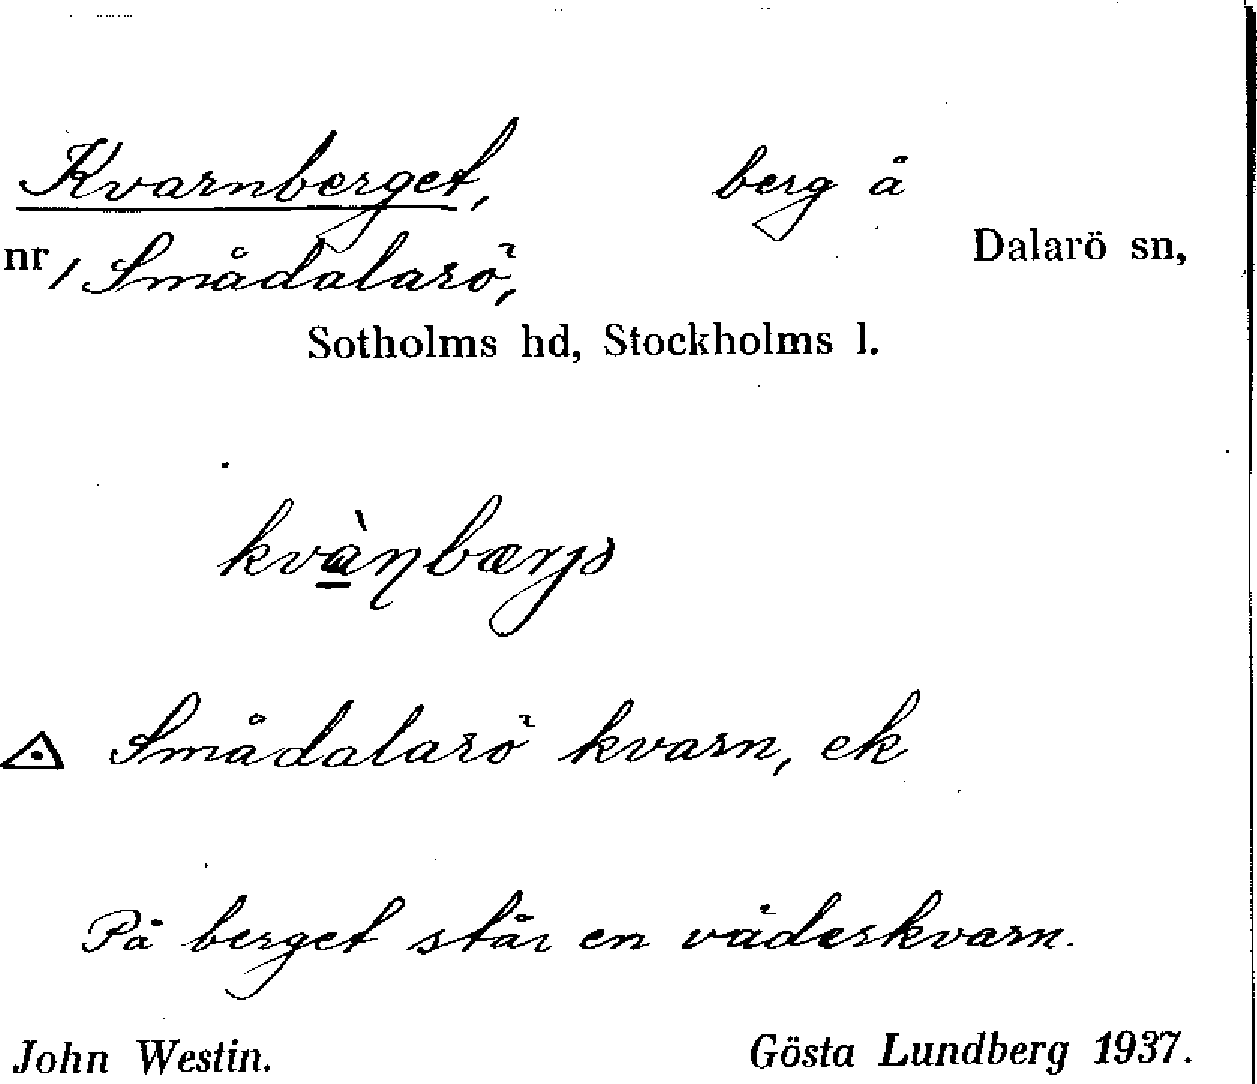 Kvarnberget, berg å
nr 1 Smådalarö, Dalarö sn,
Sotholms hd, Stockholms l.
Smådalarö kvarn, ek
På berget står en väderkvarn.
John Westin. Gösta Lundberg 1937.